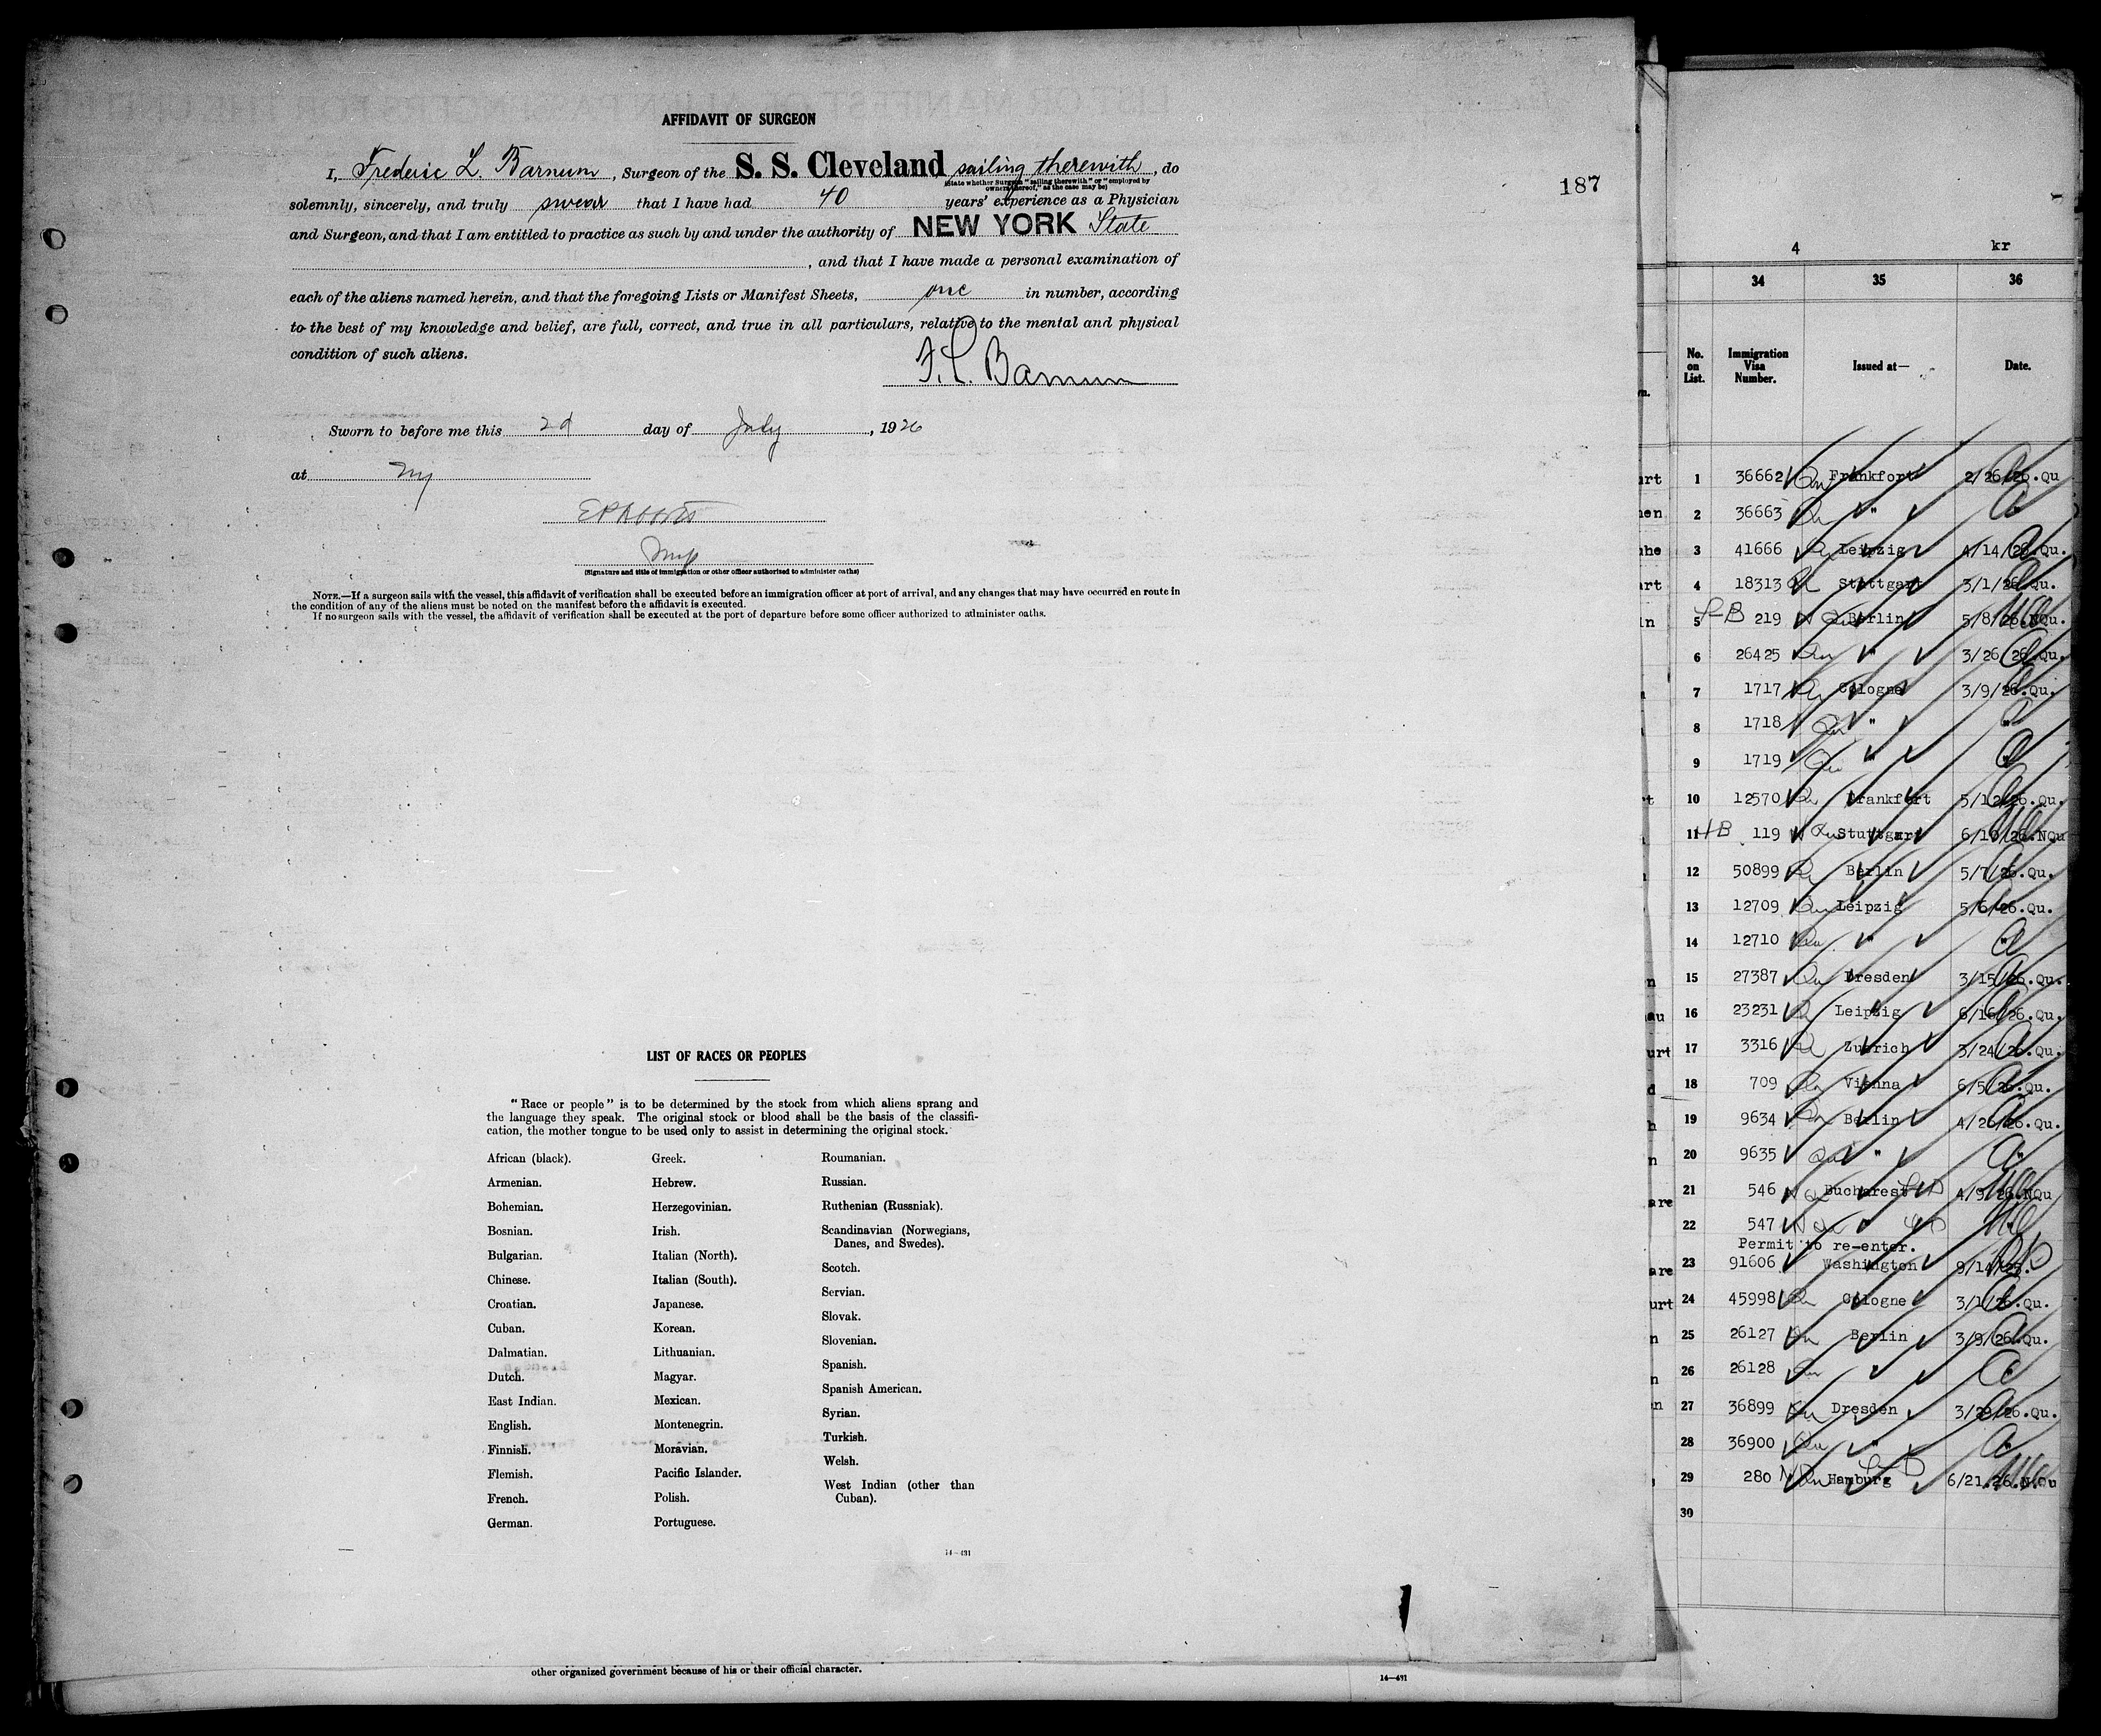 AFFIDAVIT OF SURGEON
I, Frederic L. Barnum, Surgeon of the S. S. Cleveland sailing therewith, do
(State whether Surgeon "sailing therewith" or "employed by
owners thereof," as the case may be)
solemnly, sincerely, and truly swear that I have had 40 years' experience as a Physician
and Surgeon, and that I am entitled to practice as such by and under the authority of NEW YORK State
, and that I have made a personal examination of
each of the aliens named herein, and that the foregoing Lists or Manifest Sheets, one in number, according
to the best of my knowledge and belief, are full, correct, and true in all particulars, relative to the mental and physical
condition of such aliens.
F. L. Barnum
Sworn to before me this 2d day of July, 1926
at NY
(Signature and title of immigration or other officer authorized to administer oaths)
NOTE.—If a surgeon sails with the vessel, this affidavit of verification shall be executed before an immigration officer at port of arrival, and any changes that may have occurred en route in
the condition of any of the aliens must be noted on the manifest before the affidavit is executed.
If no surgeon sails with the vessel, the affidavit of verification shall be executed at the port of departure before some officer authorized to administer oaths.
187
LIST OF RACES OR PEOPLES
"Race or people" is to be determined by the stock from which aliens sprang and
the language they speak. The original stock or blood shall be the basis of the classifi-
cation, the mother tongue to be used only to assist in determining the original stock.
African (black).
Armenian.
Bohemian.
Bosnian.
Bulgarian.
Chinese.
Croatian.
Cuban.
Dalmatian.
Dutch.
East Indian.
English.
Finnish.
Flemish.
French.
German.
Greek.
Hebrew.
Herzegovinian.
Irish.
Italian (North).
Italian (South).
Japanese.
Korean.
Lithuanian.
Magyar.
Mexican.
Montenegrin.
Moravian.
Pacific Islander.
Polish.
Portuguese.
Roumanian.
Russian.
Ruthenian (Russniak).
Scandinavian (Norwegians,
Danes, and Swedes).
Scotch.
Servian.
Slovak.
Slovenian.
Spanish.
Spanish American.
Syrian.
Turkish.
Welsh.
West Indian (other than
Cuban).
14—431
other organized government because of his or their official character.
14—431
4 kr
34 35 36
No. on List. Immigration Visa Number. Issued at— Date.
1 36662 Frankfort 2/26/26.Qu
2 36663 "
3 41666 Leipzig 4/14/26.Qu.
4 18313 Stuttgart 3/1/26.Qu.
5 219 Berlin 5/8/26.NQu.
6 26425 " 3/26/26.Qu.
7 1717 Cologne 3/9/26.Qu.
8 1718 " "
9 1719 " "
10 12570 Frankfort 5/12/26.Qu.
11 119 Stuttgart 6/10/26.NQu
12 50899 Berlin 5/7/26.Qu.
13 12709 Leipzig 5/6/26.Qu.
14 12710 " "
15 27387 Dresden 3/15/26.Qu.
16 23231 Leipzig 6/16/26.Qu.
17 3316 Zuerich 3/24/26.Qu.
18 709 Vienna 6/5/26.Qu.
19 9634 Berlin 4/26/26.Qu.
20 9635 " "
21 546 Bucharest 4/9/26.NQu
22 547 "
Permit to re-enter.
23 91606 Washington 9/14/25.
24 45998 Cologne 3/1/26.Qu.
25 26127 Berlin 3/9/26.Qu.
26 26128 " "
27 36899 Dresden 3/29/26.Qu.
28 36900 " "
29 280 Hamburg 6/21.26.N.Qu
30